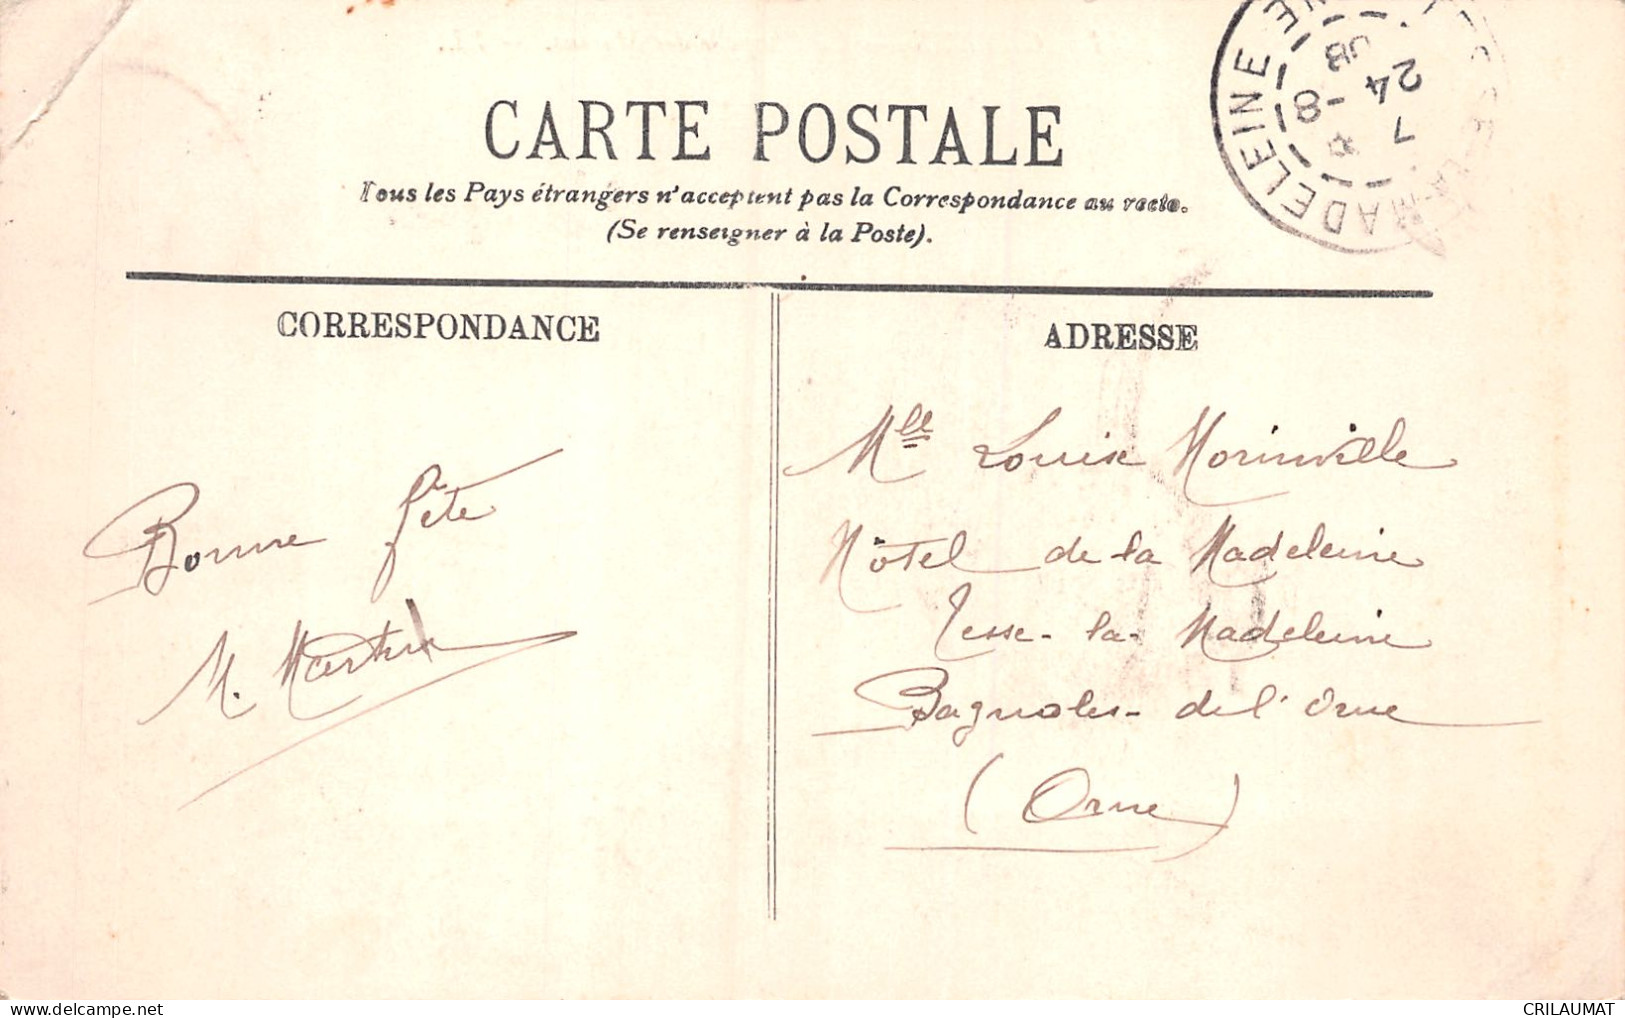 CARTE POSTALE
Tous les Pays étrangers n'acceptent pas la Correspondance au recto.
(Se renseigner à la Poste).
CORRESPONDANCE
ADRESSE
MADELEINE
7
24 -8
08
Bonne fête
M. Martin
Mlle Louise Morinville
Hôtel de la Madeleine
Tesse-la-Madeleine
Bagnoles-de l'Orne
(Orne)
CRILAUMAT